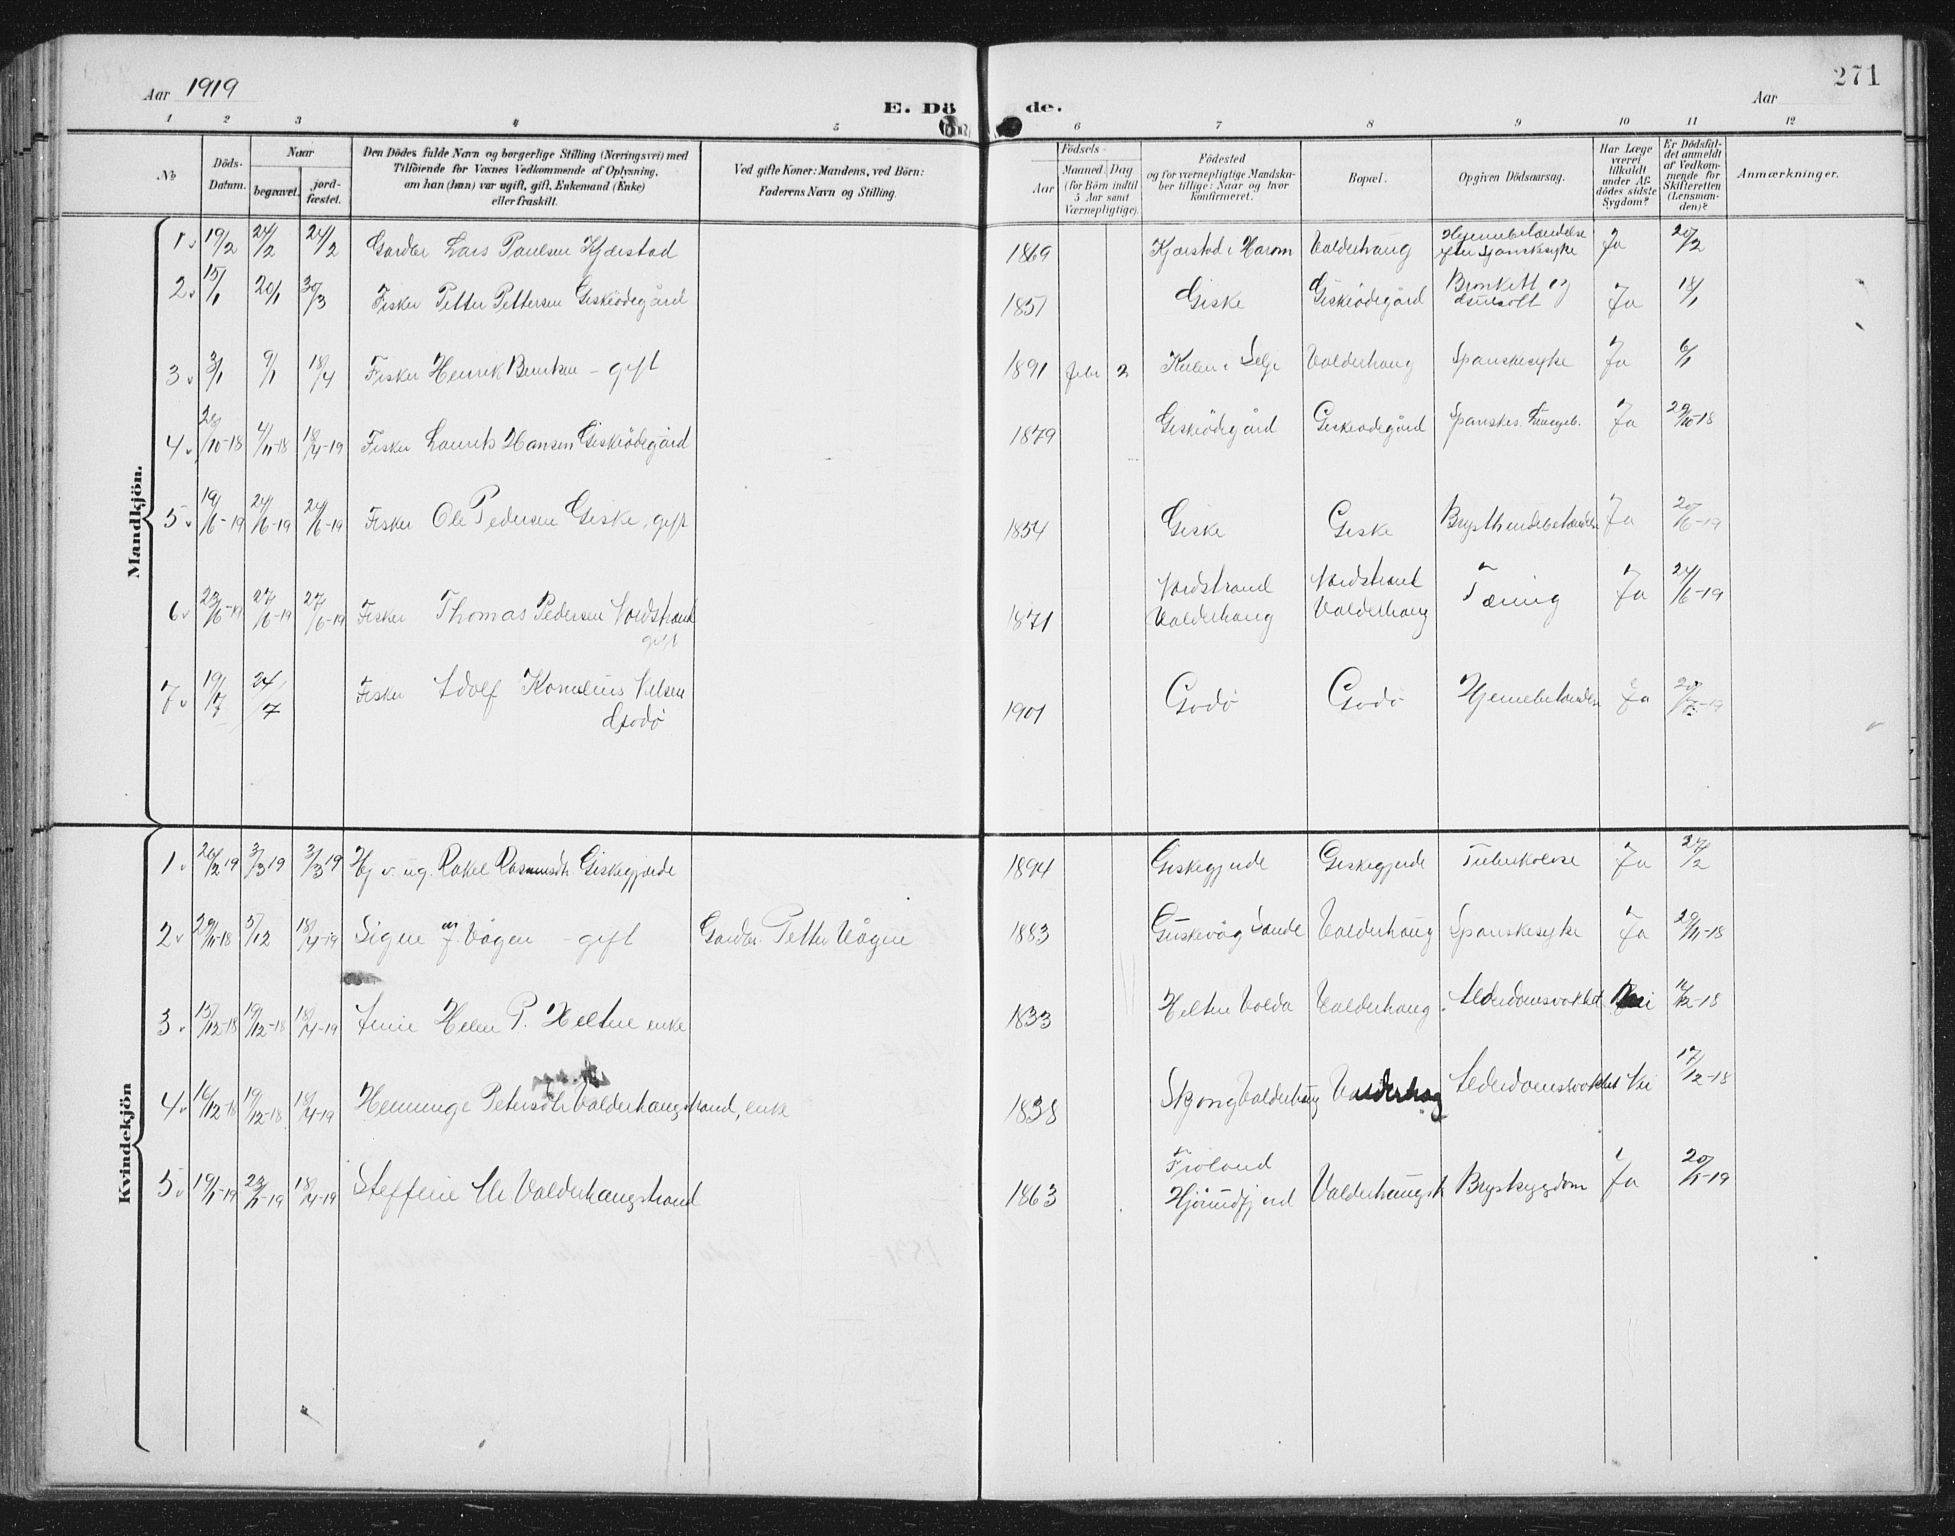 Aar 1919
E. Döde.
Aar
271
1 2 3 4 5 6 7 8 9 10 11 12
No
Döds-Datum.
Naar
begravet.
jord-fæstet.
Den Dödes fulde Navn og borgerlige Stilling (Næringsvei) med
Tilföiende for Voxnes Vedkommende af Oplysning,
om han (hun) var ugift, gift, Enkemand (Enke)
eller fraskilt.
Ved gifte Koner: Mandens, ved Börn:
Faderens Navn og Stilling.
Födsels-
Aar
Maaned. Dag
(for Börn indtil
5 Aar samt
Værnepligtige).
Födested
og for værnepligtige Mandska-
ber tillige: Naar og hvor
konfirmeret.
Bopæl.
Opgiven Dödsaarsag.
Har Læge
været
tilkaldt
under Af-
dödes sidste
Sygdom?
Er Dödsfal-
det anmeldt
af Vedkom-
mende for
Skifteretten
(Lensman-
den)?
Anmærkninger.
Mandkjön.
1 19/2 24/2 24/2 Gardbr Lars Paulsen Kjærstad 1869 Kjærstad i Harom Valderhaug Hjernebetændelse efter spanskesyke Ja 20/2
2 15/1 20/1 30/3 Fisker Petter Pettersen Giskeödegård 1851 Giske Giskeödegård Bronkitt og Ja 18/1
3 3/1 9/1 18/4 Fisker Henrik Berntsen – gift 1891 febr 2 Selje Valderhaug Spanskesyke Ja 6/1
4 /10-18 4/11-18 18/4-19 Fisker Laurits Hansen Giskeödegård 1879 Giskeödegård Giskeödegård Spanskes. Ja 29/10-18
5 19/6-19 24/6-19 24/6-19 Fisker Ole Pedersen Giske, gift 1854 Giske Giske Brysthindebetændelse Ja 20/6-19
6 23/6-19 27/6-19 27/6-19 Fisker Thomas Pedersen Nordstrand gift 1871 Nordstrand Valderhaug Nordstrand Valderhaug Tæring Ja 24/6-19
7 19/7 24/7 Fisker Adolf Kornelius Nilsen Godö 1901 Godö Godö Hjernebetændelse Ja
Kvindekjön
1 26/2 19 3/3 19 3/3 19 Rakel Rasmusdtr. Giskegjerde 1894 Giskegjerde Giskegjerde Tuberkolose Ja 27/2
2 29/11-18 5/12 18/4-19 Signe Vågen – gift Gardbr. Petter Vågen 1883 Gurskevåg Sande Valderhaug Spanskesyke Ja 29/11-18
3 15/12-18 19/12-18 18/4-19 Helen P. Heltne enke 1833 Heltne Volda Valderhaug Alderdomssvakhet Nei /12-18
4 16/12-18 19/12-18 18/4-19 Petersdtr Valderhaugstrand, enke 1838 Skjong Valderhaug Valderhaug Alderdomssvakhet Nei 17/12-18
5 19/1-19 23/1-19 18/4-19 Steffine Valderhaugstrand 1863 Hjörundfjord Valderhaugstr. Brystsygdom Ja 20/1-19